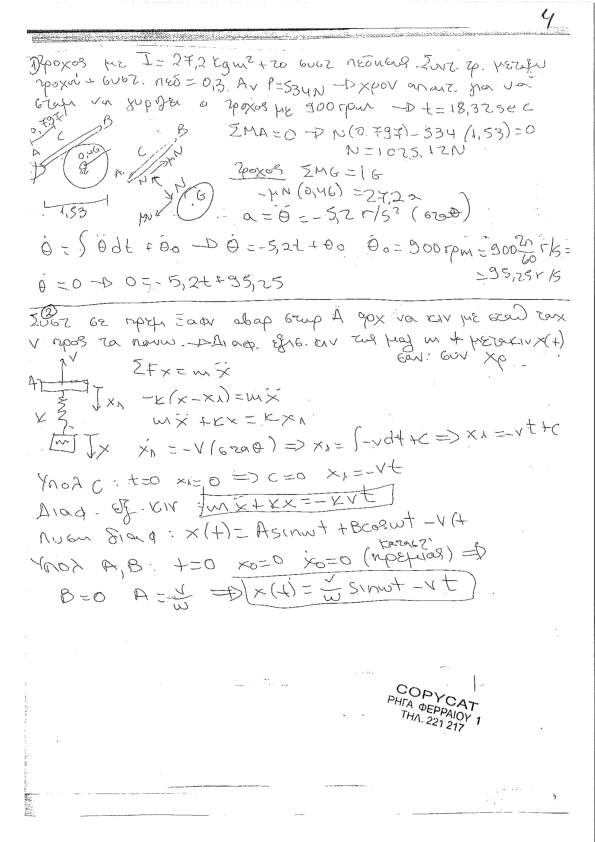 4
① Τροχος με I = 27,2 kgm² + το συστ πεδησης. Συντ. τρ. μεταξυ
τροχου + συστ. πεδ = 0,3. Αν P = 534N → χρον απαιτ. για να
σταμ να γυριζει ο τροχος με 900 rpm → t = 18,32 sec
0,797 C B
A 0,46
1,53
B C A N μN
N μN G
ΣMA = 0 → N(0.797) - 534 (1,53) = 0
N = 1025,12N
Τροχος ΣMG = IG
-μN (0,46) = 27,2 a
a = θ̈ = -5,2 r/s² (σταθ)
θ̇ = ∫ θ̈ dt + θ̇0 → θ̇ = -5,2t + θ0 θ̇0 = 900 rpm = 900 2π/60 r/s =
= 95,25 r/s
θ̇ = 0 → 0 = -5,2t + 95,25
②
Συστ σε ηρεμ Ξαφν αβαρ στηρ A αρχ να κιν με σταθ ταχ
V προς τα πανω. → Διαφ. εξισ. κιν της μαζ m + μετακιν x(t)
σαν συν χρ
V A x1 K m x
ΣFx = mẍ
-k(x-x1) = mẍ
mẍ + kx = kx1
ẋ1 = -V (σταθ) => x1 = ∫ -vdt + c => x1 = -vt + c
Υπολ C : t=0 x1=0 => c=0 x1 = -vt
Διαφ. εξ. κιν : mẍ + kx = -kvt
Λυση διαφ : x(t) = Asinωt + Bcosωt - V(t
Υπολ A, B : t=0 x0=0 ẋ0=0 (καταστ. ηρεμιας) =>
B=0 A = v/ω => x(t) = v/ω sinωt - vt
COPYCAT
ΡΗΓΑ ΦΕΡΡΑΙΟΥ 1
ΤΗΛ. 221 217